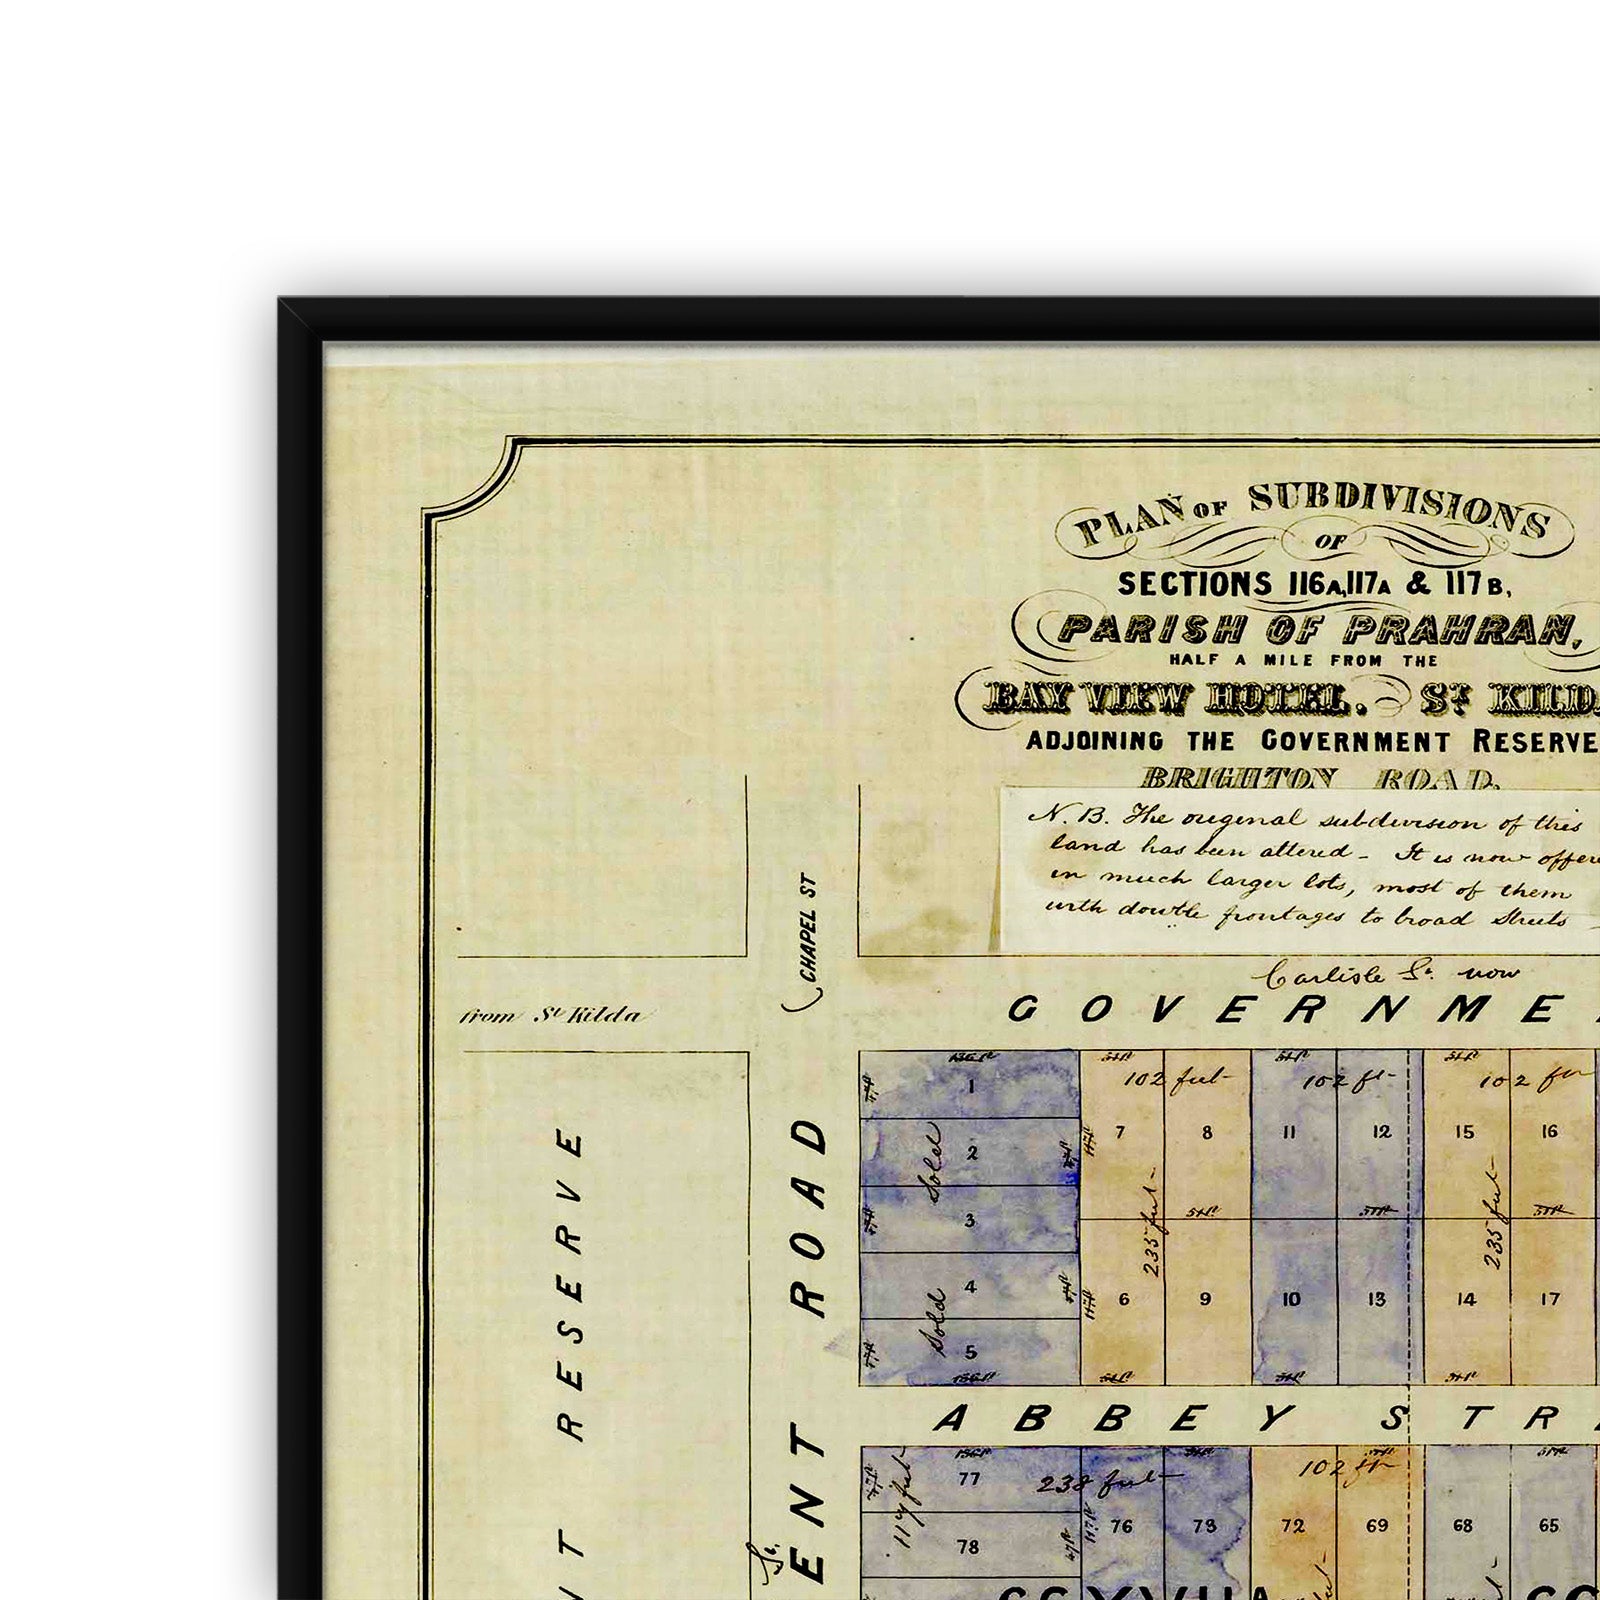 PLAN OF SUBDIVISIONS
OF
SECTIONS 116A, 117A & 117B,
PARISH OF PRAHRAN,
HALF A MILE FROM THE
BAY VIEW HOTEL. ST KILD
ADJOINING THE GOVERNMENT RESERVE
BRIGHTON ROAD.
N.B. The original subdivision of this
land has been altered - It is now offere
in much larger lots, most of them
with double frontages to broad streets
CHAPEL ST
Carlisle St. now
from St Kilda
GOVERNME
1
102 feet
102 ft
102
2
7 8 11 12 15 16
Sold
3
235 feet
235 feet
4
6 9 10 13 14 17
Sold
5
RESERVE
ROAD
ABBEY STR
77
238 feet
102 ft
117 feet
76 73 72 69 68 65
78
ENT
NT
St.